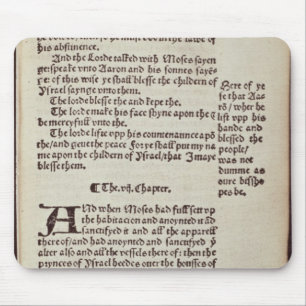 his abstinence.
And the Lorde talked with Moses sayen-
ge: speake vnto Aaron and his sonnes sayen-
ge: of this wise ye shall blesse the childern of
Ysrael saynge vnto them.
The lorde blesse the and kepe the.
The lorde make his face shyne apon the &
be mercyfull vnto the.
The lorde lift vpp his countenaunce apō
the/ and geue the peace. For ye shall put my na
me apon the childern of Ysrael/ that I maye
blesse them.
¶ The .vij. Chapter.
AND when Moses had full sett vp
the habitacion and anoynted it ād
sanctifyed it and all the apparell
there of/ and had anoynted and sanctifyed ẏ
alter also and all the vessels there of: then the
prynces of Ysrael heedes ouer the housses of
Here of ye
se that Aa-
rō/ wher he
lift vpp his
hande and
blessed the
people/
was not
dumme as
oure bissho
pes be.